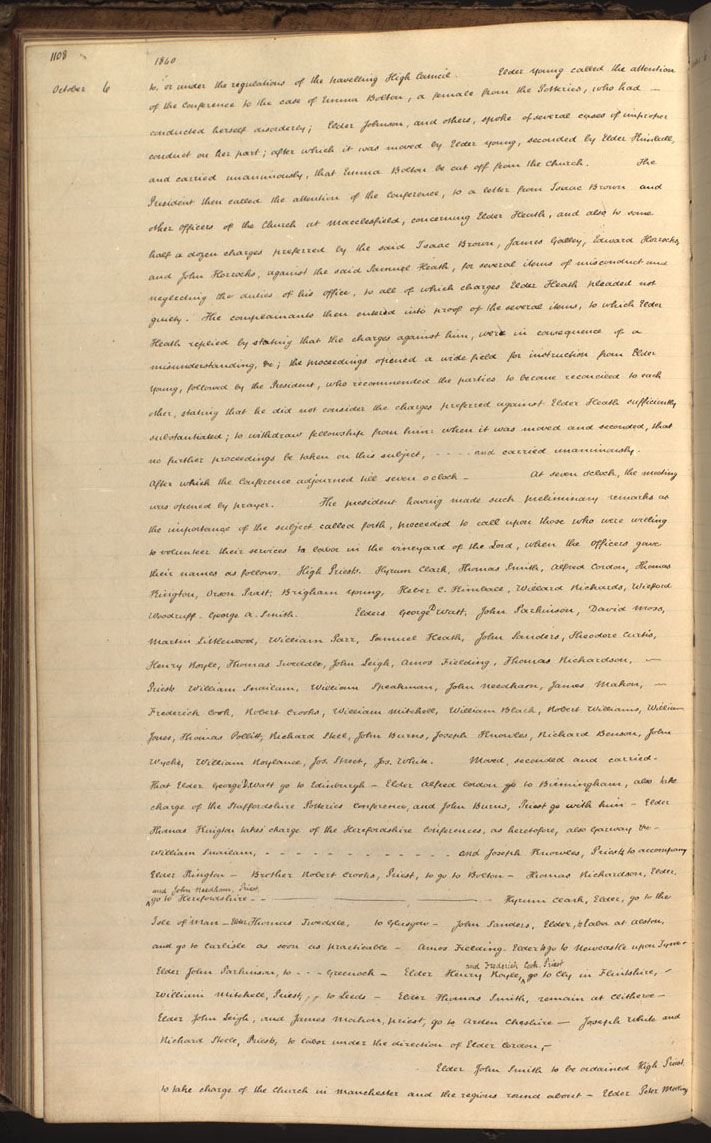 1108
1840
October 6
to, or under the regulations of the travelling High Council. Elder Young called the attention
of the Conference to the case of Emma Bolton, a female from the Potteries, who had —
conducted herself disorderly; Elder Johnson, and others, spoke of several cases of improper
conduct on her part; after which it was moved by Elder Young, seconded by Elder Kimball,
and carried unanimously, that Emma Bolton be cut off from the Church. The
President then called the attention of the Conference, to a letter from Isaac Brown and
other officers of the Church at Macclesfield, concerning Elder Heath, and also to some
half a dozen charges preferred by the said Isaac Brown, James Galley, Edward Horrocks,
and John Horrocks, against the said Samuel Heath, for several items of misconduct and
neglecting the duties of his office, to all of which charges Elder Heath pleaded not
guilty. The complainants then entered into proof of the several items, to which Elder
Heath replied by stating that the charges against him, were in consequence of a
misunderstanding, &c; the proceedings opened a wide field for instruction from Elder
Young, followed by the President, who recommended the parties to become reconciled to each
other, stating that he did not consider the charges preferred against Elder Heath sufficiently
substantiated; to withdraw fellowship from him: when it was moved and seconded, that
no further proceedings be taken on this subject, - - - - - and carried unanimously.
After which the Conference adjourned till seven o clock — At seven o'clock, the meeting
was opened by prayer. The president having made such preliminary remarks as
the importance of the subject called forth, proceeded to call upon those who were willing
to volunteer their services to labor in the vineyard of the Lord, when the officers gave
their names as follows. High Priests. Hyrum Clark, Thomas Smith, Alfred Cordon, Thomas
Kington, Orson Pratt, Brigham Young, Heber C. Kimball, Willard Richards, Wilford
Woodruff. George A. Smith. Elders George D Watt, John Parkinson, David Moss,
Martin Littlewood, William Parr, Samuel Heath, John Sanders, Theodore Curtis,
Henry Royle, Thomas Tweddle, John Leigh, Amos Fielding, Thomas Richardson, —
Priests William Snailum, William Speakman, John Needham, James Mahon, —
Frederick Cook, Robert Crooks, William Mitchell, William Black, Robert Williams, William
Jones, Thomas Pollitt, Richard Steel, John Burns, Joseph Knowles, Richard Benson, John
Wyche, William Roylance, Jos. Street, Jos. White. Moved, seconded and carried -
That Elder George D. Watt go to Edinburgh — Elder Alfred Cordon go to Birmingham, also take
charge of the Staffordshire Potteries Conference, and John Burns, Priest go with him — Elder
Thomas Kington take charge of the Herefordshire Conferences, as heretofore, also Garway &c —
William Snailam, - - - - - - - - - - - - and Joseph Knowles, Priests to accompany
Elder Kington — Brother Robert Crooks, Priest, to go to Bolton — Thomas Richardson, Elder,
and John Needham, Priest,
go to Herefordshire - - ——————— - - Hyrum Clark, Elder, go to the
Isle of Man — Elder Thomas Tweddle, to Glasgow — John Sanders, Elder, to labor at Alston,
and go to Carlisle as soon as practicable — Amos Fielding. Elder to go to Newcastle upon Tyne —
Elder John Parkinson, to - - - Greenock — Elder Henry Royle, go to Cly in Flintshire, -
and Frederick Cook, Priest
William Mitchell, Priest, to Leeds — Elder Thomas Smith, remain at Clitheroe —
Elder John Leigh, and James Mahon, priest, go to Arden Cheshire — Joseph White and
Richard Steele, Priests, to labor under the direction of Elder Cordon, —
Elder John Smith to be ordained High Priest
to take charge of the Church in Manchester and the regions round about — Elder Peter Melling